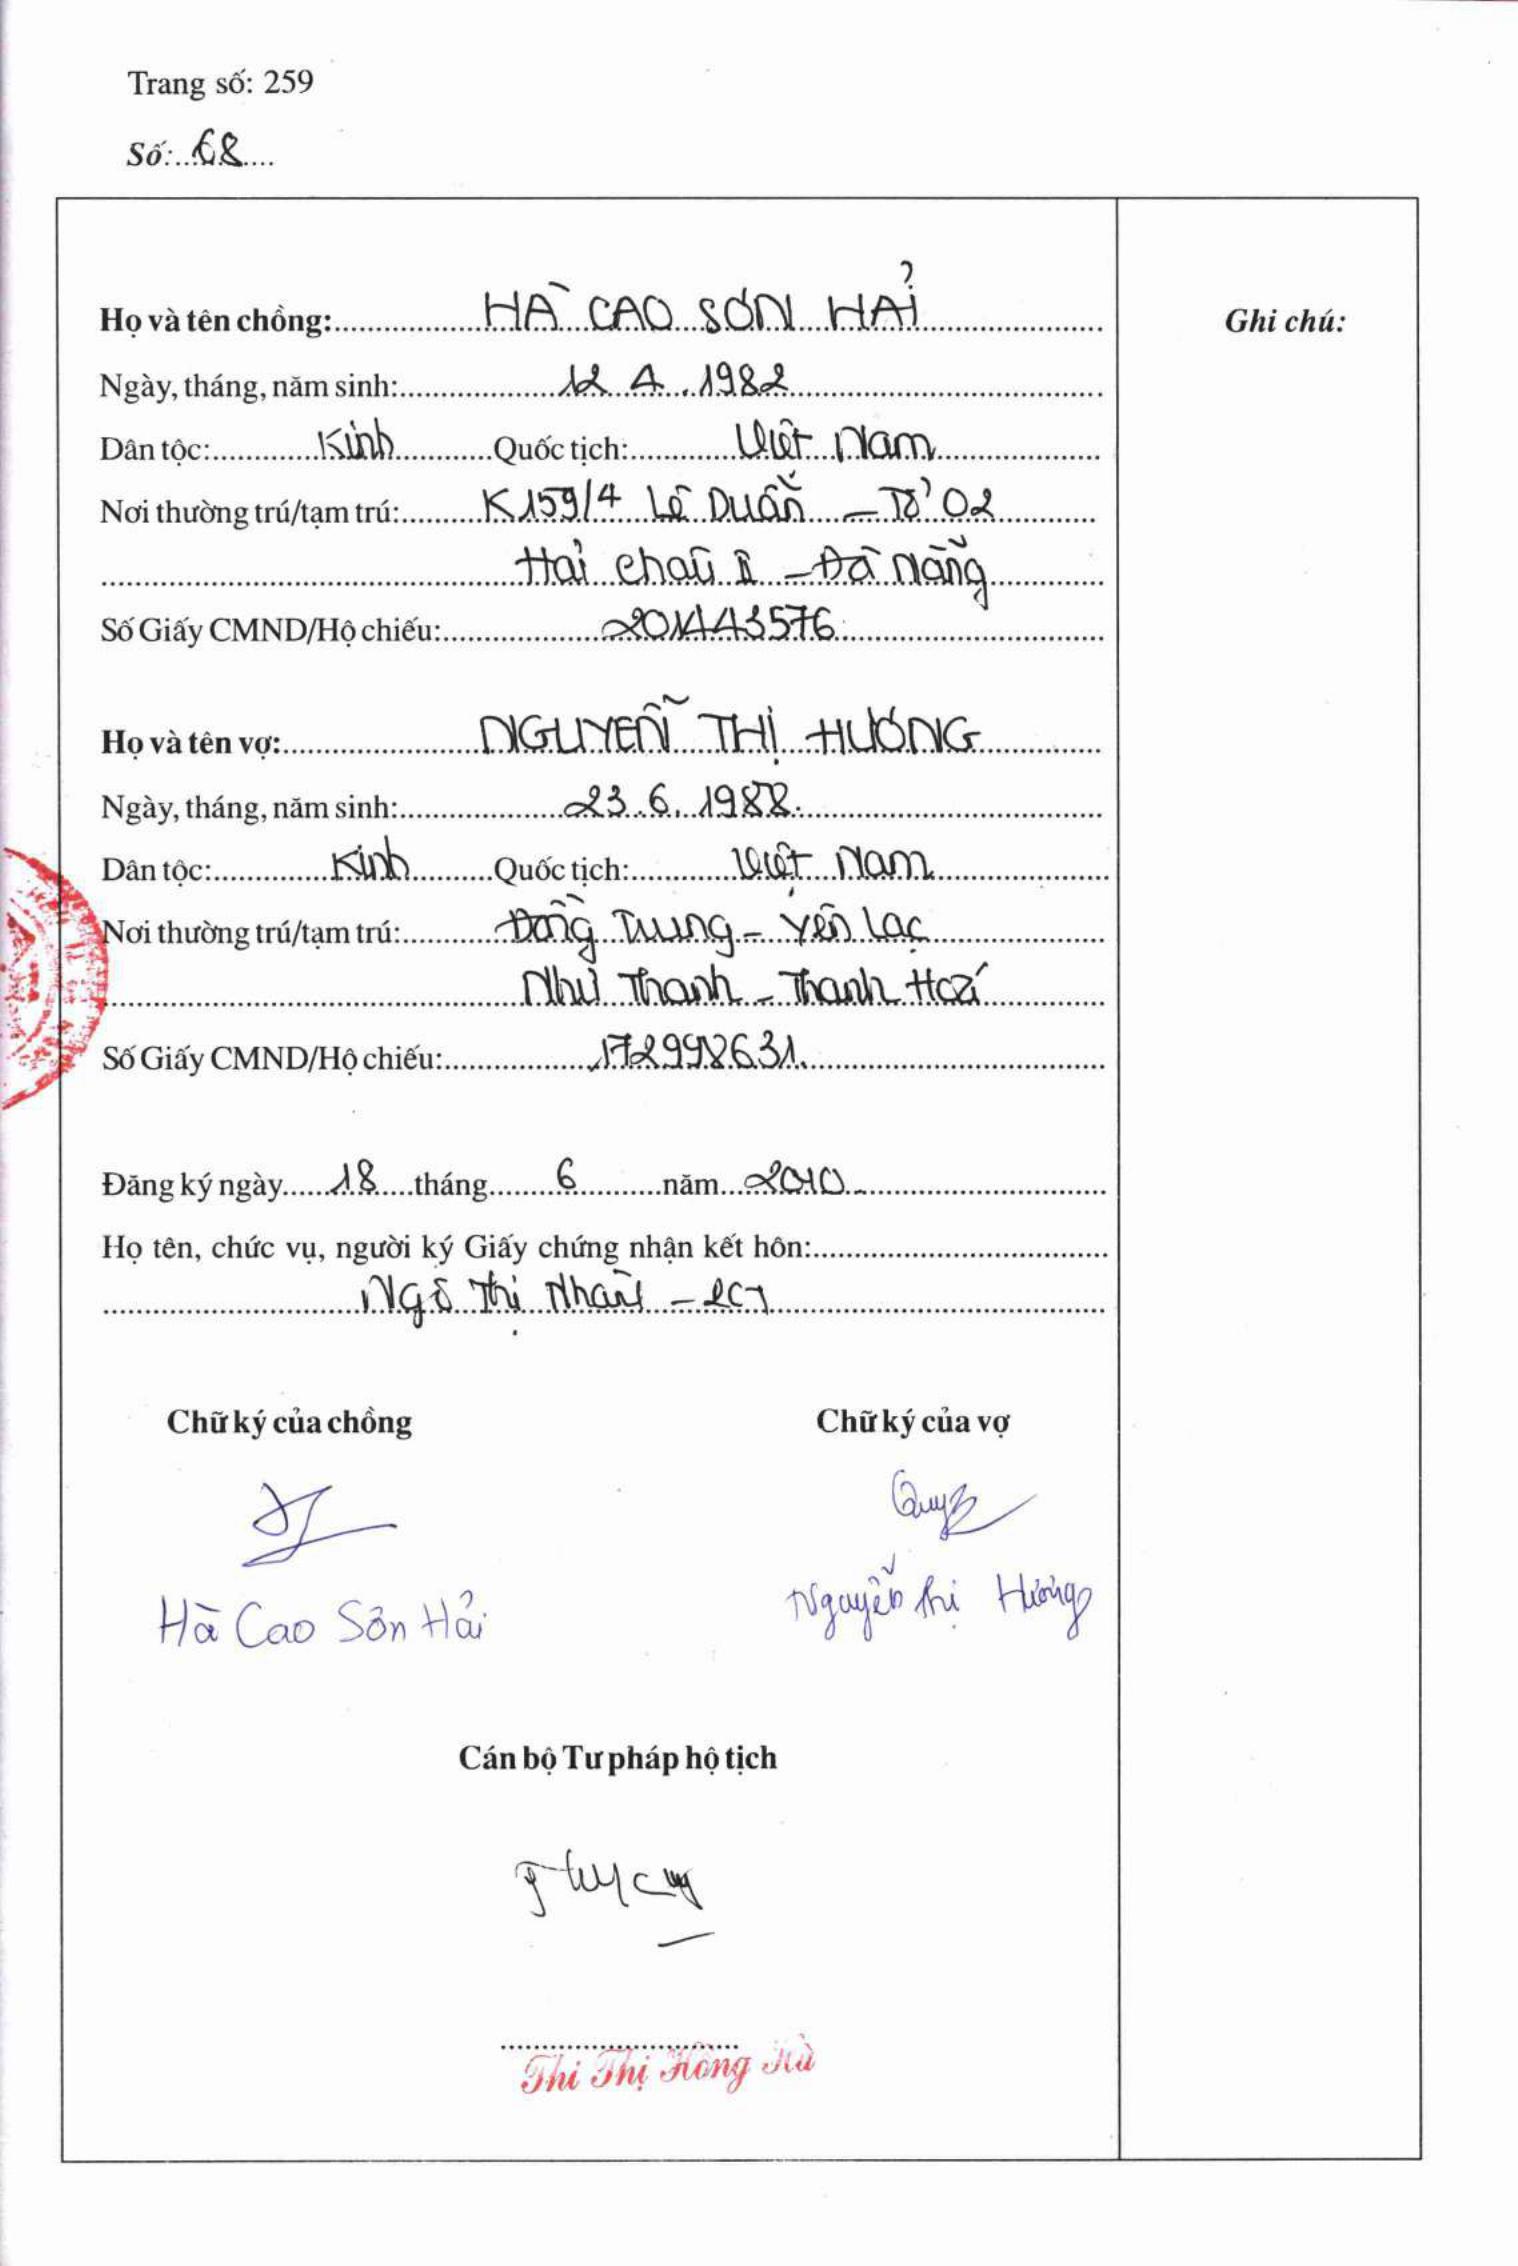 Trang số: 259
Số: 68
Họ và tên chồng: HÀ CAO SƠN HẢI
Ghi chú:
Ngày, tháng, năm sinh: 12.4.1982
Dân tộc: Kinh Quốc tịch: Việt Nam
Nơi thường trú/tạm trú: K159/4 Lê Duẩn - Tổ 02
Hải Châu II - Đà Nẵng
Số Giấy CMND/Hộ chiếu: 201443576
Họ và tên vợ: NGUYỄN THỊ HƯƠNG
Ngày, tháng, năm sinh: 23.6.1988
Dân tộc: Kinh Quốc tịch: Việt Nam
Nơi thường trú/tạm trú: Đồng Trung - Yên Lạc
Như Thanh - Thanh Hoá
Số Giấy CMND/Hộ chiếu: 172998631
Đăng ký ngày 18 tháng 6 năm 2010
Họ tên, chức vụ, người ký Giấy chứng nhận kết hôn:
Ngô Thị Nhân -
Chữ ký của chồng
Chữ ký của vợ
Hà Cao Sơn Hải
Nguyễn Thị Hương
Cán bộ Tư pháp hộ tịch
Thi Thị Hồng Hà